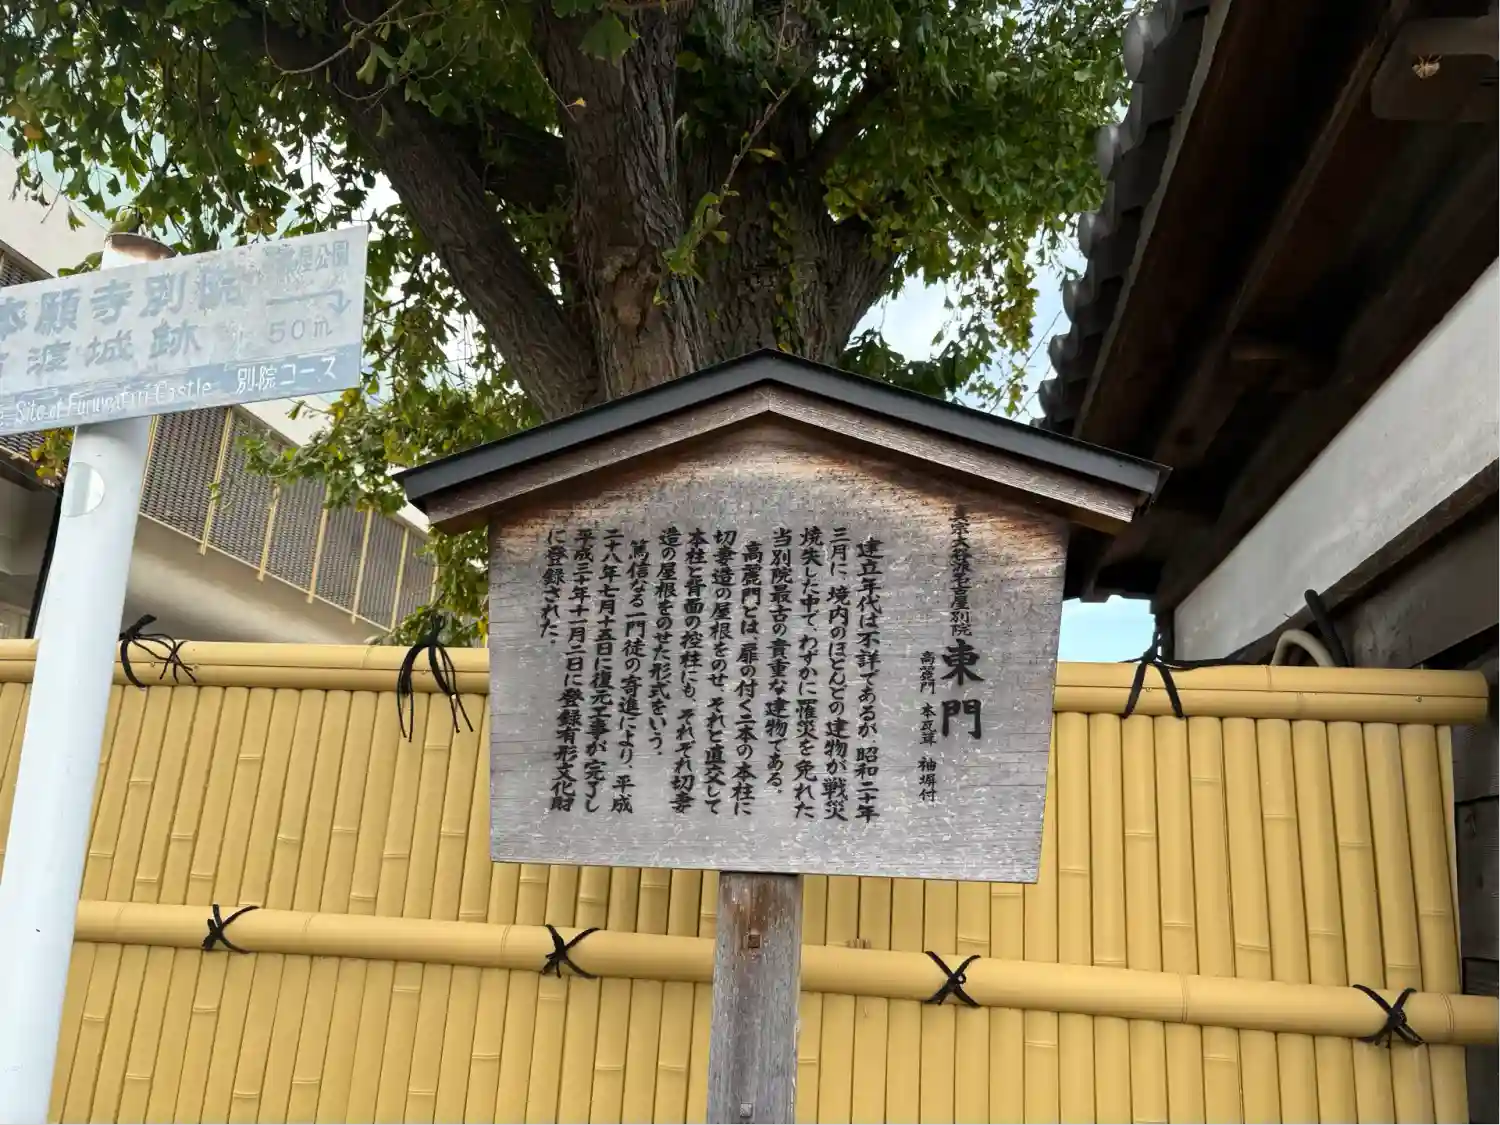 本願寺別院
渡城跡
屋公園
50m
Site of Furuwatari Castle 別院コース
真宗大谷派名古屋別院 東門
高麗門 本瓦葺 袖塀付
建立年代は不詳であるが、昭和二十年
三月に、境内のほとんどの建物が戦災
焼失した中で、わずかに罹災を免れた
当別院最古の貴重な建物である。
高麗門とは、扉の付く二本の本柱に
切妻造の屋根をのせ、それと直交して
本柱と背面の控柱にも、それぞれ切妻
造の屋根をのせた形式をいう。
篤信なる一門徒の寄進により、平成
二十八年七月十五日に復元工事が完了し
平成三十年十一月二日に登録有形文化財
に登録された。